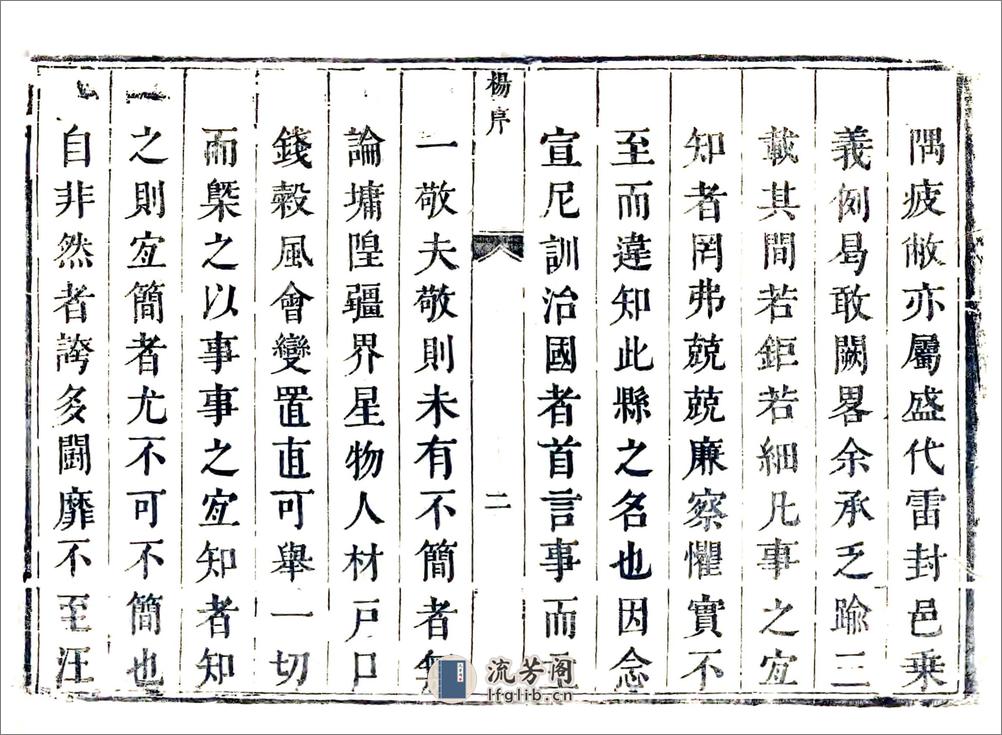 隅疲敝亦屬盛代雷封邑乘
義例曷敢闕畧余承乏踰三
載其間若鉅若細凡事之宐
知者罔弗兢兢廉察懼實不
至而違知此縣之名也因念
宣尼訓治國者首言事而
楊序
二
一敬夫敬則未有不簡者無
論墉隍疆界星物人材戸口
錢穀風會變置直可舉一切
而槩之以事事之宐知者知
之則宐簡者尤不可不簡也
自非然者誇多鬭靡不至汪
流芳阁
lfglib.cn